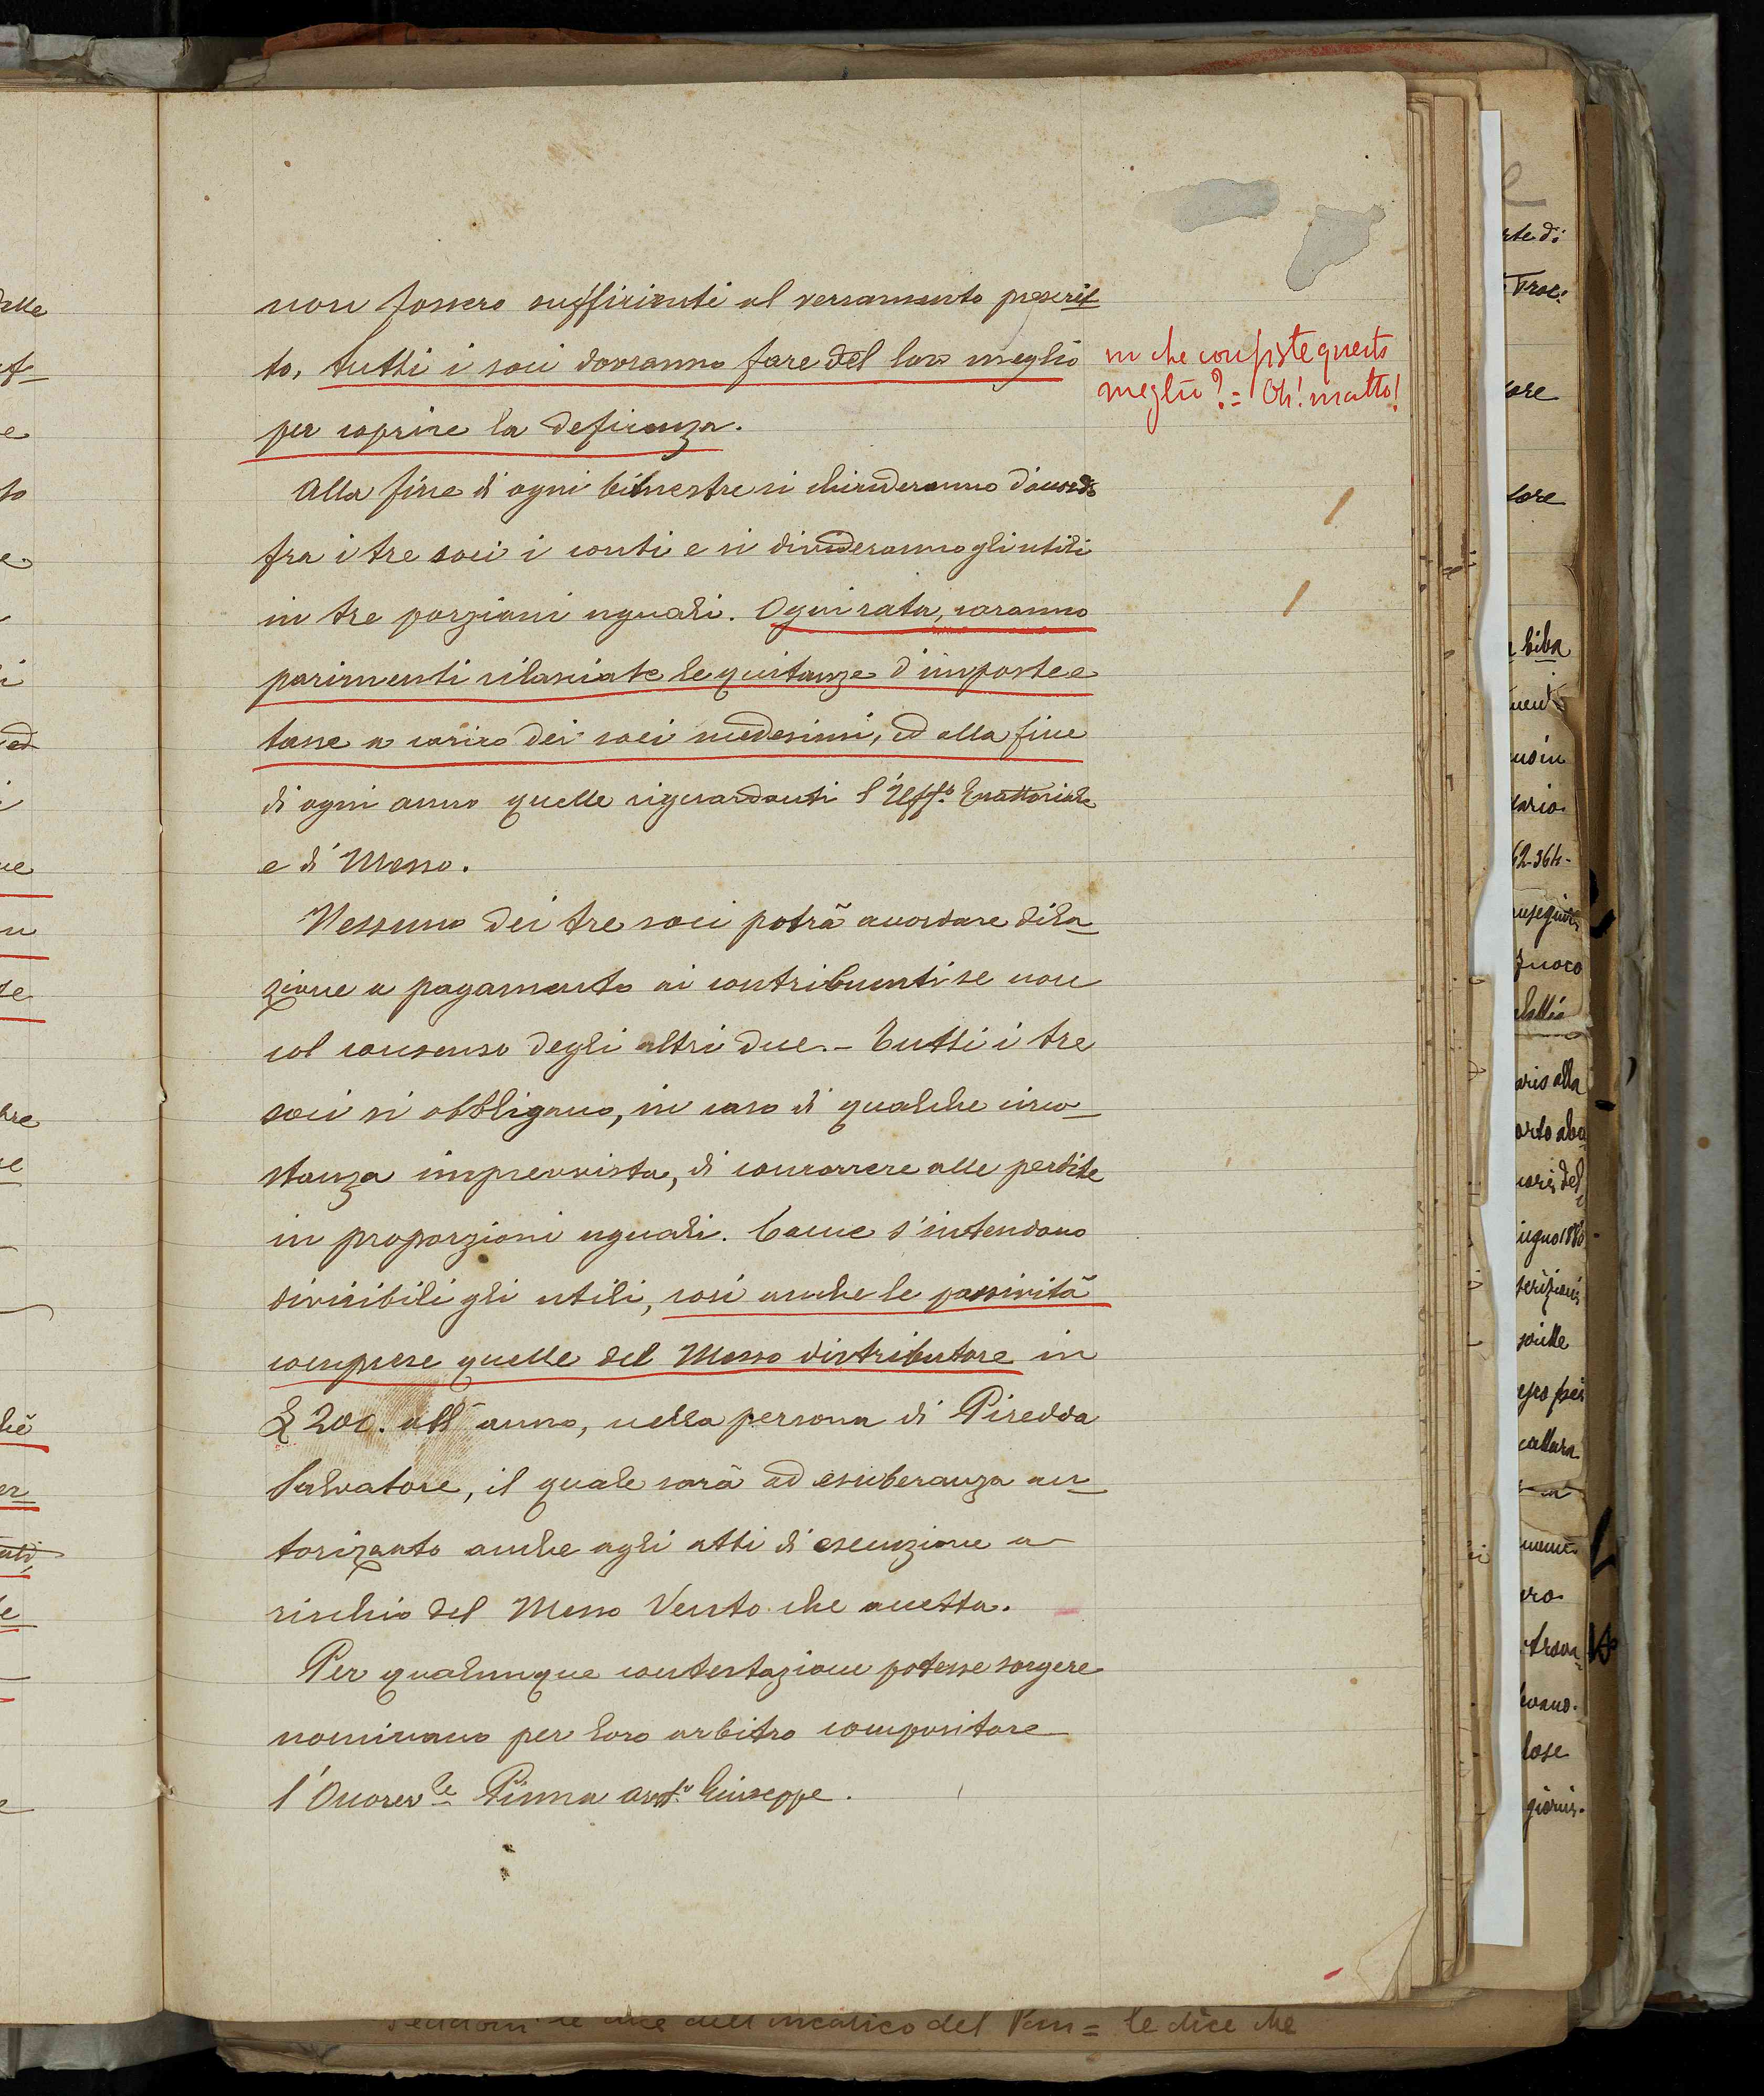 non fossero sufficienti al versamento prescrit
to, tutti i soci dovranno fare del loro meglio
in che consiste questo
meglio? = Oh! matto!
per coprire la deficienza.
Alla fine di ogni bimestre si chiuderanno d'accordo
fra i tre soci i conti e si divideranno gli utili
in tre porzioni uguali. Ogni rata, saranno
parimenti rilasciate le quitanze d'imposte e
tasse a carico dei soci medesimi, ed alla fine
di ogni anno quelle riguardanti l'Uffo. Esattoriale
e di Messo.
Nessuno dei tre soci potrà accordare dila
zione a pagamento ai contribuenti se non
col consenso degli altri due. - Tutti i tre
soci si obbligano, in caso di qualche circo
stanza imprevvista, di concorrere alle perdite
in proporzioni uguali. Come s'intendono
divisibili gli utili, così anche le passività
comprese quelle del Messo distributore in
£ 200. all'anno, nella persona di Piredda
Salvatore, il quale sarà ad esuberanza au
torizzato anche agli atti di esecuzione a
rischio del Messo Versto che accetta.
Per qualunque contestazione potesse sorgere
nominano per loro arbitro compositore
l'Onorevle Pinna Giuseppe.
del Pam = le dice che